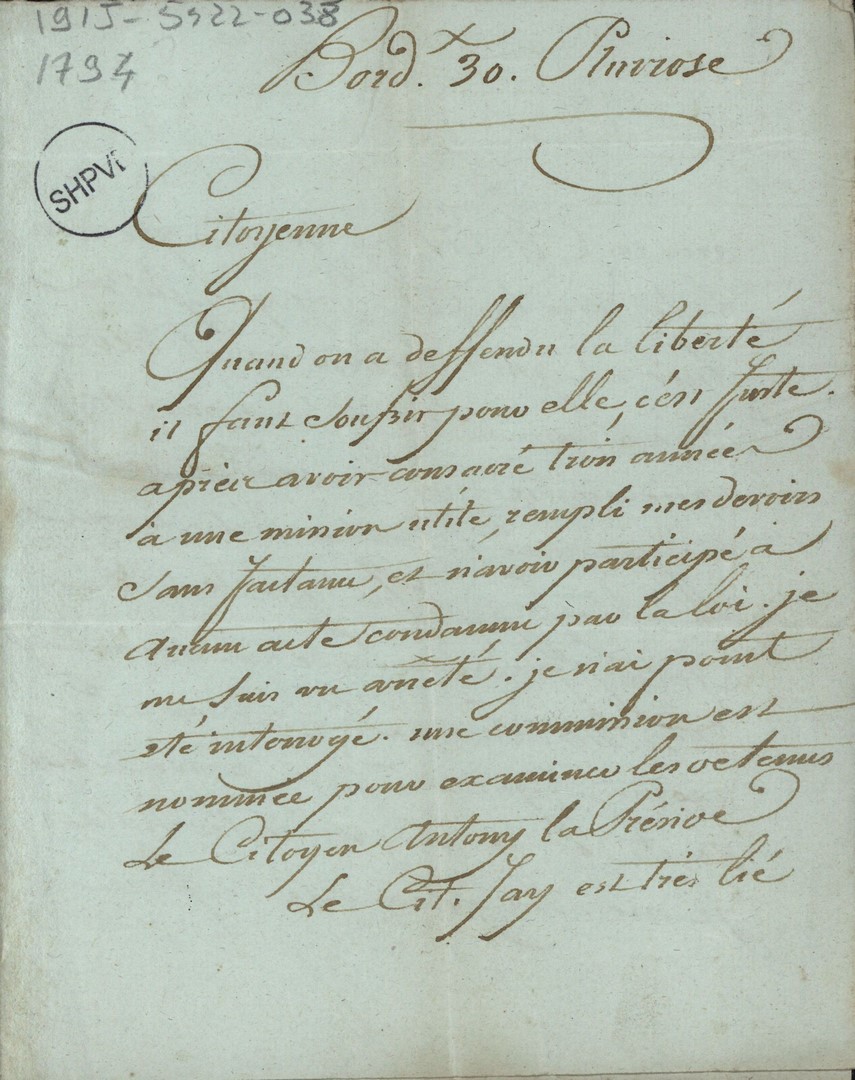 1915-5922-038
1794
Bord.x 30. Pluviose
SHPVF
Citoyenne
Quand on a deffendu la liberté
il faut souffrir pour elle, c'est Juste.
après avoir consacré trois années
à une mission utile, rempli mes devoirs
sans Jactance, et n'avoir participé à
aucun acte condamné par la loi. je
me suis vu arrêté. je n'ai point
eté interrogé. une commission est
nommée pour examiner les detenus
Le Citoyen Antony la Préside
Le Cit. Jay est très lié